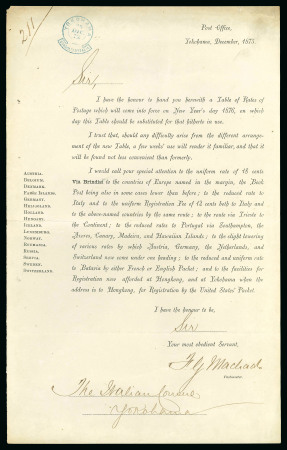 211
Post Office,
Yokohama, December, 1875.
Sir,
I have the honour to hand you herewith a Table of Rates of
Postage which will come into force on New Year's day 1876, on which
day this Table should be substituted for that hitherto in use.
I trust that, should any difficulty arise from the different arrange-
ment of the new Table, a few weeks' use will render it familiar, and that it
will be found not less convenient than formerly.
I would call your special attention to the uniform rate of 18 cents
Via Brindisi to the countries of Europe named in the margin, the Book
Post being also in some cases lower than before; to the reduced rate to
Italy and to the uniform Registration Fee of 12 cents both to Italy and
to the above-named countries by the same route; to the route via Trieste to
the Continent; to the reduced rates to Portugal via Southampton, the
Azores, Canary, Madeira, and Hawaiian Islands; to the slight lowering
of various rates by which Austria, Germany, the Netherlands, and
Switzerland now come under one heading; to the reduced and uniform rate
to Batavia by either French or English Packet; and to the facilities for
Registration now afforded at Hongkong, and at Yokohama when the
address is to Hongkong, for Registration by the United States' Packet.
Austria.
Belgium.
Denmark.
Faroe Islands.
Germany.
Heligoland.
Holland.
Hungary.
Iceland.
Luxemburg.
Norway.
Roumania.
Russia.
Servia.
Sweden.
Switzerland.
I have the honour to be,
Sir
Your most obedient Servant,
F G Machado
Postmaster.
The Italian Consul
Yokohama